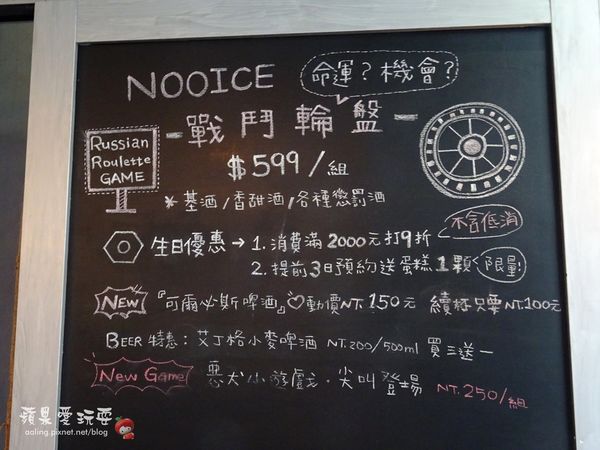 NOOICE
命運？機會？
-戰鬥輪盤-
Russian
Roulette
GAME
$599/組
＊基酒/香甜酒/各種懲罰酒
不含低消
生日優惠→1.消費滿2000元打9折
2.提前3日預約送蛋糕1顆
限量!
NEW『可爾必斯啤酒』♡動價NT.150元 續杯只要NT.100元
BEER特惠：艾丁格小麥啤酒 NT.200/500ml 買三送一
New Game 惡犬小遊戲·尖叫登場 NT.250/組
蘋果愛玩耍
aaling.pixnet.net/blog